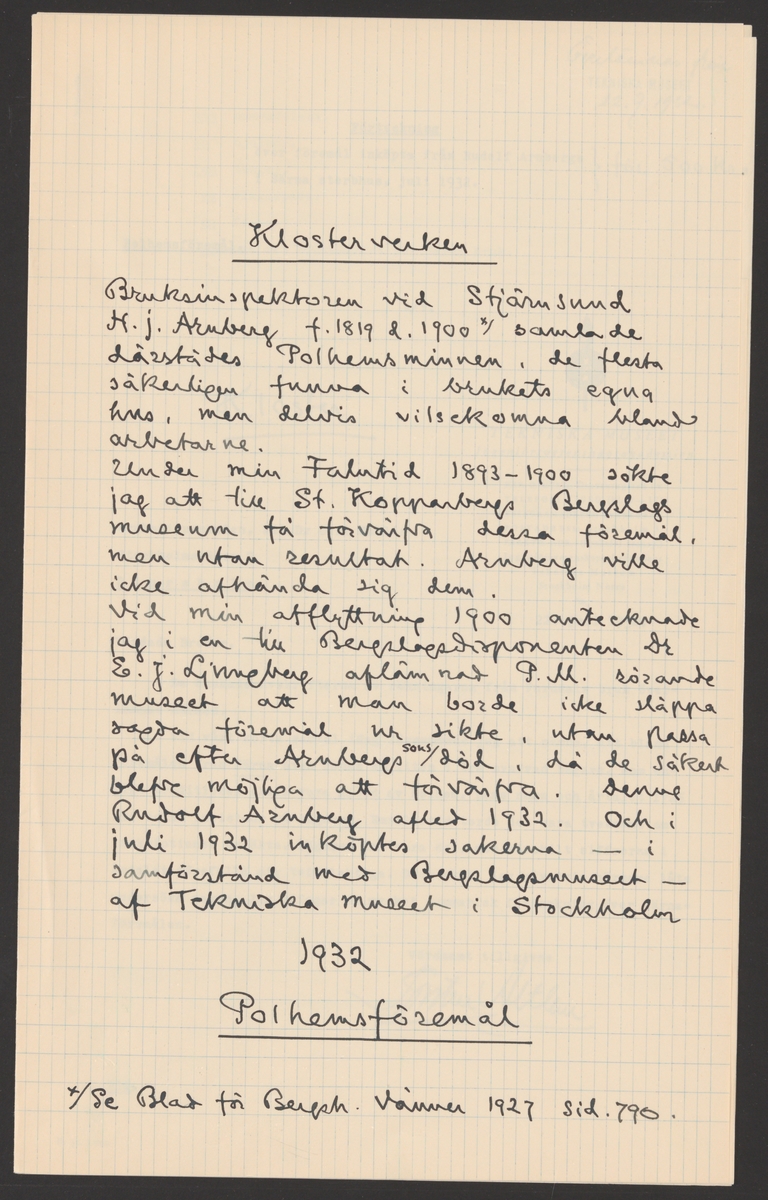 Klosterverken
Bruksinspektoren vid Stjärnsund
H. J. Arnberg f. 1819 d. 1900 x/ samlade
därstädes Polhemsminnen, de flesta
säkerligen funna i brukets egna
hus, men delvis vilsekomna bland
arbetarne.
Under min Falutid 1893-1900 sökte
jag att till St. Kopparbergs Bergslags
museum få förvärfva dessa föremål,
men utan resultat. Arnberg ville
icke afhända sig dem.
Vid min afflyttning 1900 antecknade
jag i en till Bergslagsdisponenten Dr
E. J. Ljungberg aflämnad P.M. rörande
museet att man borde icke släppa
sagda föremål ur sikte, utan passa
på efter Arnbergs sons/död, då de säkert
blefve möjliga att förvärfva. Denne
Rudolf Arnberg afled 1932. Och i
juli 1932 inköptes sakerna — i
samförstånd med Bergslagsmuseet —
af Tekniska museet i Stockholm
1932
Polhemsföremål
x/ Se Blad för Bergh. Vänner 1927 sid. 790.